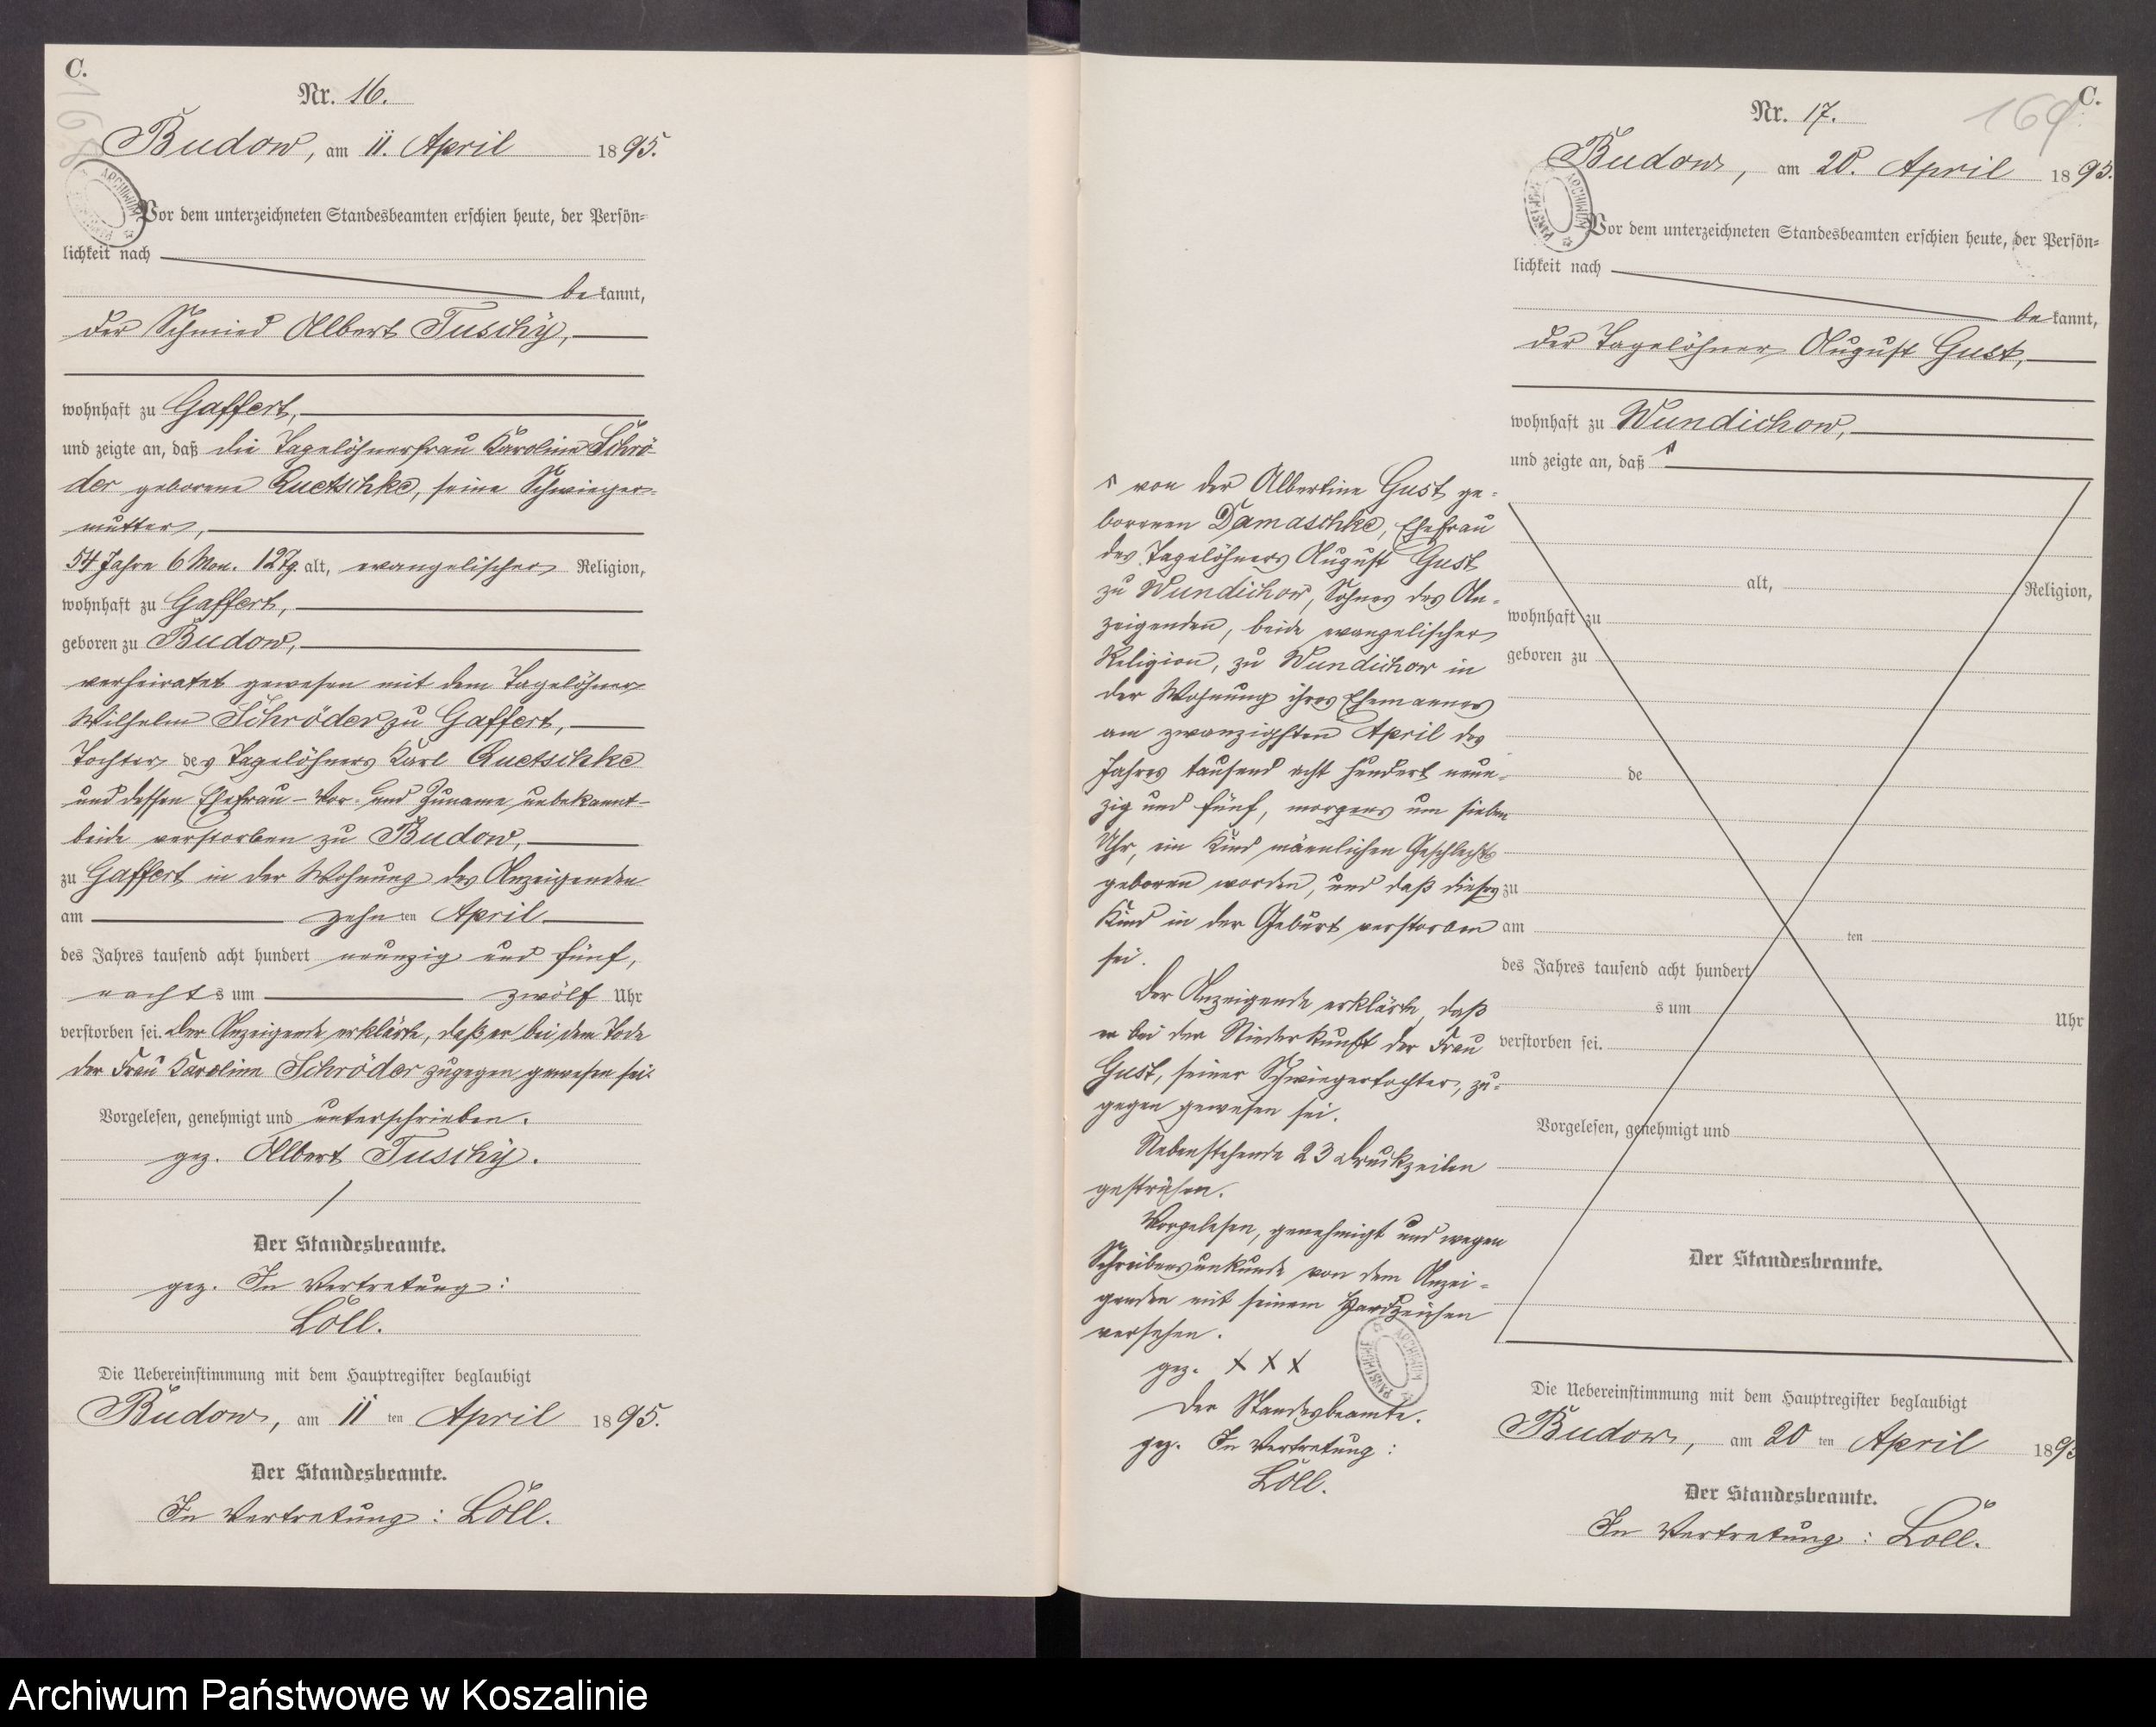 C.
Nr. 16.
Budow, am 11. April 1895.
Vor dem unterzeichneten Standesbeamten erschien heute, der Persön-
lichkeit nach
bekannt,
der Schmied Albert Tuschy,
wohnhaft zu Gaffert,
und zeigte an, daß die Tagelöhnerfrau Karoline Schrö-
der geborene Quetschke, seine Schwieger-
mutter,
54 Jahre 6 Mon. 12 Tg. alt, evangelischer Religion,
wohnhaft zu Gaffert,
geboren zu Budow,
verheiratet gewesen mit dem Tagelöhner
Wilhelm Schröder zu Gaffert,
Tochter des Tagelöhners Karl Quetschke
und dessen Ehefrau – Vor- und Zuname unbekannt –
beide verstorben zu Budow,
zu Gaffert in der Wohnung des Anzeigenden
am zehnten April
des Jahres tausend acht hundert neunzig und fünf,
nachts um zwölf Uhr
verstorben sei. Der Anzeigende erklärte, daß er bei dem Tode
der Frau Karoline Schröder zugegen gewesen sei.
Vorgelesen, genehmigt und unterschrieben.
gez. Albert Tuschy.
Der Standesbeamte.
gez. In Vertretung:
Löll.
Die Uebereinstimmung mit dem Hauptregister beglaubigt
Budow, am 11 ten April 1895.
Der Standesbeamte.
In Vertretung: Löll.
C.
169
Nr. 17.
Budow, am 20. April 1895.
Vor dem unterzeichneten Standesbeamten erschien heute, der Persön-
lichkeit nach
bekannt,
der Tagelöhner August Gust,
wohnhaft zu Wundichow,
und zeigte an, daß
von der Albertine Gust ge-
borenen Damaschke, Ehefrau
des Tagelöhners August Gust
zu Wundichow, Sohnes des An-
zeigenden, beide evangelischer
Religion, zu Wundichow in
der Wohnung ihres Ehemannes
am zwanzigsten April des
Jahres tausend acht hundert neun-
zig und fünf, morgens um sieben
Uhr, ein Kind männlichen Geschlechts
geboren worden, und daß dieses
Kind in der Geburt verstorben
sei.
Der Anzeigende erklärte, daß
er bei der Niederkunft der Frau
Gust, seiner Schwiegertochter, zu-
gegen gewesen sei.
Nebenstehende 23 Druckzeilen
gestrichen.
Vorgelesen, genehmigt und wegen
Schreibensunkunde von dem Anzei-
genden mit seinem Handzeichen
versehen.
gez. X X X
Der Standesbeamte.
gez. In Vertretung:
Löll.
alt, Religion,
wohnhaft zu
geboren zu
de
zu
am ten
des Jahres tausend acht hundert
s um Uhr
verstorben sei.
Vorgelesen, genehmigt und
Der Standesbeamte.
Die Uebereinstimmung mit dem Hauptregister beglaubigt
Budow, am 20 ten April 189
Der Standesbeamte.
In Vertretung: Löll.
ARCHIWUM PAŃSTWOWE
Archiwum Państwowe w Koszalinie